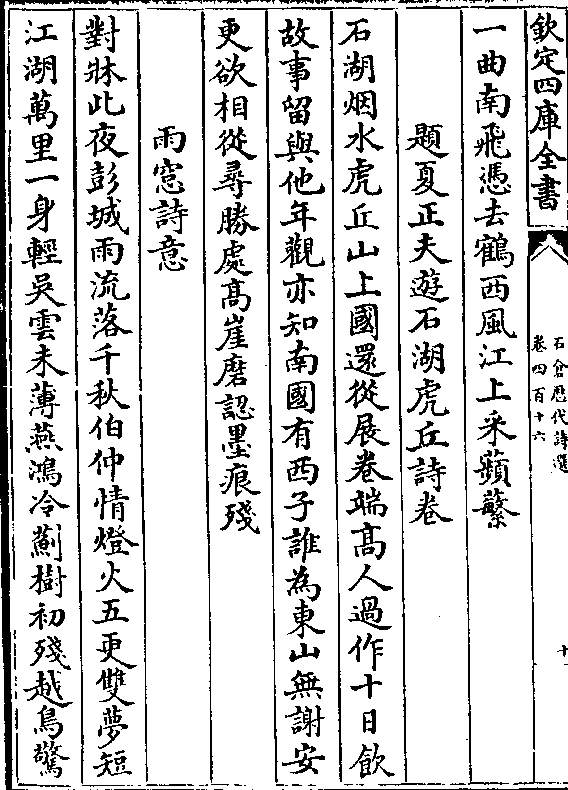 欽定四庫全書
石倉歷代詩選
卷四百十六
十
一曲南飛憑去鶴西風江上采蘋蘩
題夏正夫遊石湖虎丘詩卷
石湖烟水虎丘山上國還從展卷端高人過作十日飲
故事留與他年觀亦知南國有西子誰為東山無謝安
更欲相從尋勝處高崖磨認墨痕殘
雨窓詩意
對牀此夜彭城雨流落千秋伯仲情燈火五更雙夢短
江湖萬里一身輕吳雲未薄燕鴻冷薊樹初殘越鳥驚